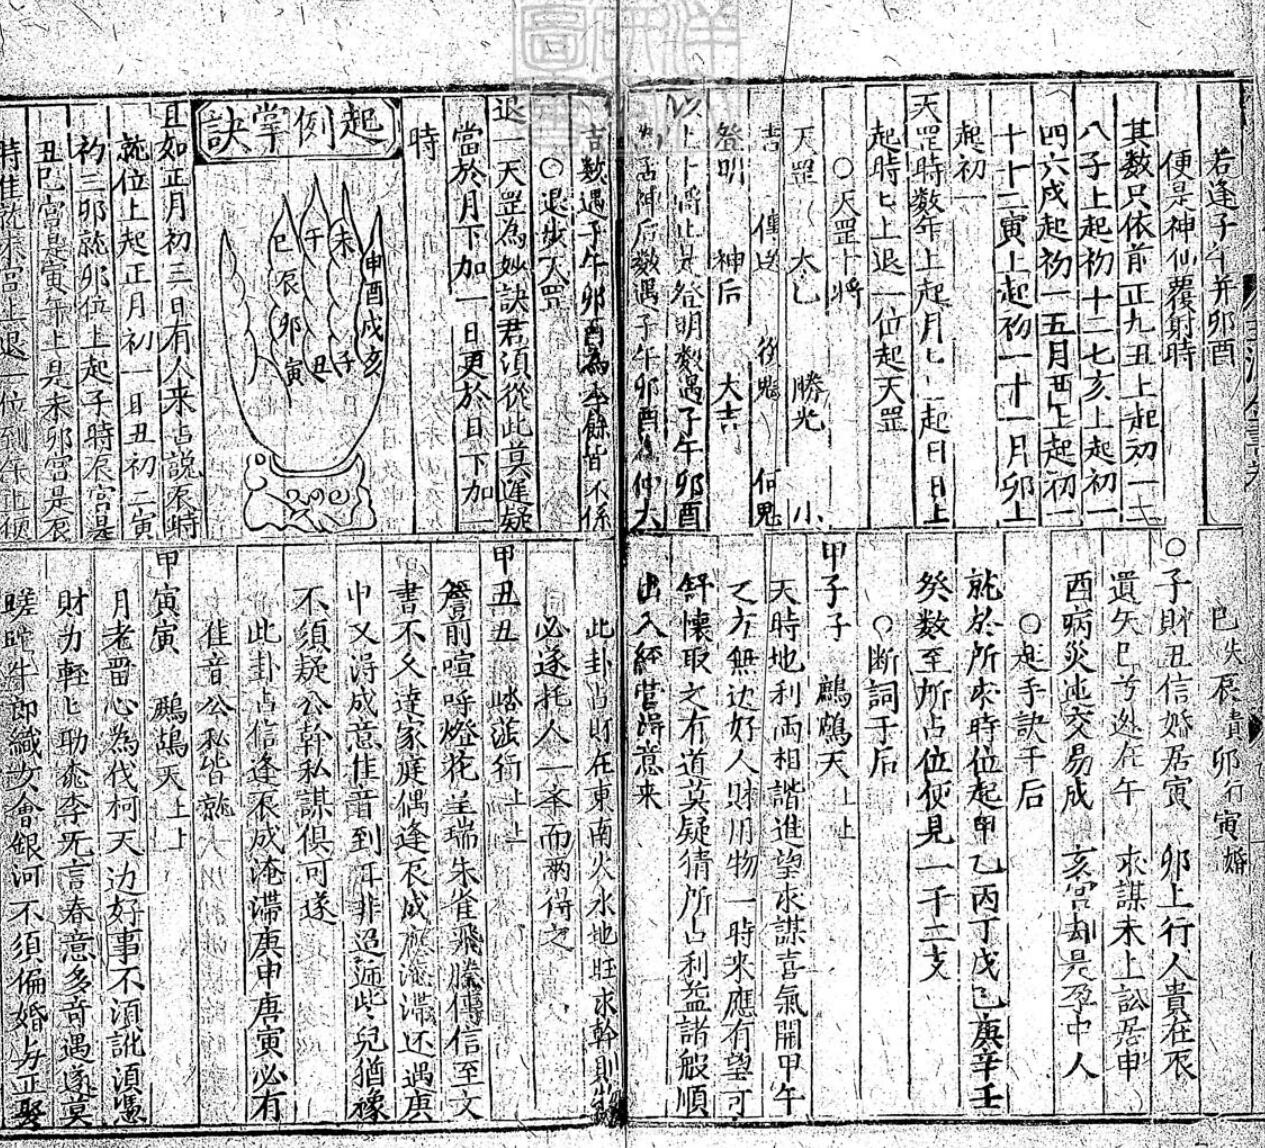 若逢子午并卯酉
便是神仙覆射時
其数只依前正九丑上起初一
八子上起初一十二七亥上起初一
四六戌起初一五月酉上起初一
十十二寅上起初一十一月卯上
起初一
天罡時数年上起月月上起日日上
起時時上退一位起天罡
○天罡十將
天罡 太乙 勝光 小
吉 傳送 從魁 何魁
登明 神后 大吉
以上十將止是登明数遇子午卯酉
為孟神后数遇子午卯酉為仲大
吉数遇子午卯酉為季餘皆不係
○退步天罡
退一天罡為妙訣君須從此莫遲疑
當於月下加一日更於日下加一
時
起例掌訣
申酉戌亥
未 子
午 丑
巳辰卯寅
且如正月初三日有人来占說辰時
就位上起正月初一日丑初二寅
初三卯就卯位上起子時辰宮是
丑巳宮是寅午上是未卯宮是辰
時佳就宮上退一位到
巳失辰責卯行寅婚
○子財丑信婚居寅 卯上行人責在辰
遺失巳兮逃在午 求謀未上訟居申
酉病災迍交易成 亥宮却是孕中人
○起手訣于后
就於所求時位起甲乙丙丁戊己庚辛壬
癸数至所占位便見一千二支
○断詞于后
甲子子 鷓鴣天
天時地利兩相諧進望求謀喜氣開甲午
乙方無边好人財用物一時来應有望可
舒懷取之有道莫疑猜所占利益諸般順
出入經营得意来
此卦占財在東南火水地旺求幹則
必遂托人一条而兩得之
甲丑丑 踏莎行
簷前喧呼燈花呈瑞朱雀飛騰傳信至文
書不久達家庭偶逢辰戌應淹滯还遇庚
申又得成意佳音到耳非迢遞些兒猶豫
不須疑公幹私謀俱可遂
此卦占信逢辰戌淹滯庚申庚寅必有
佳音公私皆就
甲寅寅 鷓鴣天
月老畱心為伐柯天边好事不須訛須憑
財力輕七助桃李无言春意多奇遇遂莫
蹉跎牛郎織女會銀河不須偏婚与正娶